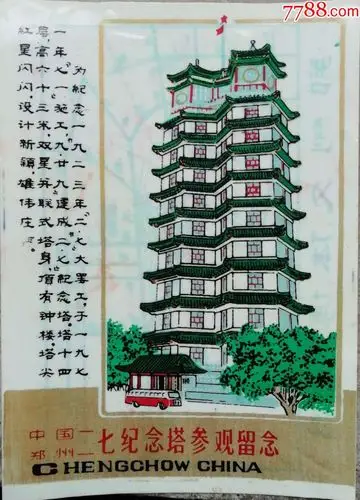 7788.com
为纪念一九二三年"二七"大罢工,于一九七
一年"七一"工,"九·廿九"建成"二七"纪念塔。塔十四
高六十三米,双星并联式塔身,顶有钟楼,塔尖
紅星闪闪,设计新颖,雄伟庄
中国
郑州
二七纪念塔参观留念
CHENGCHOW CHINA